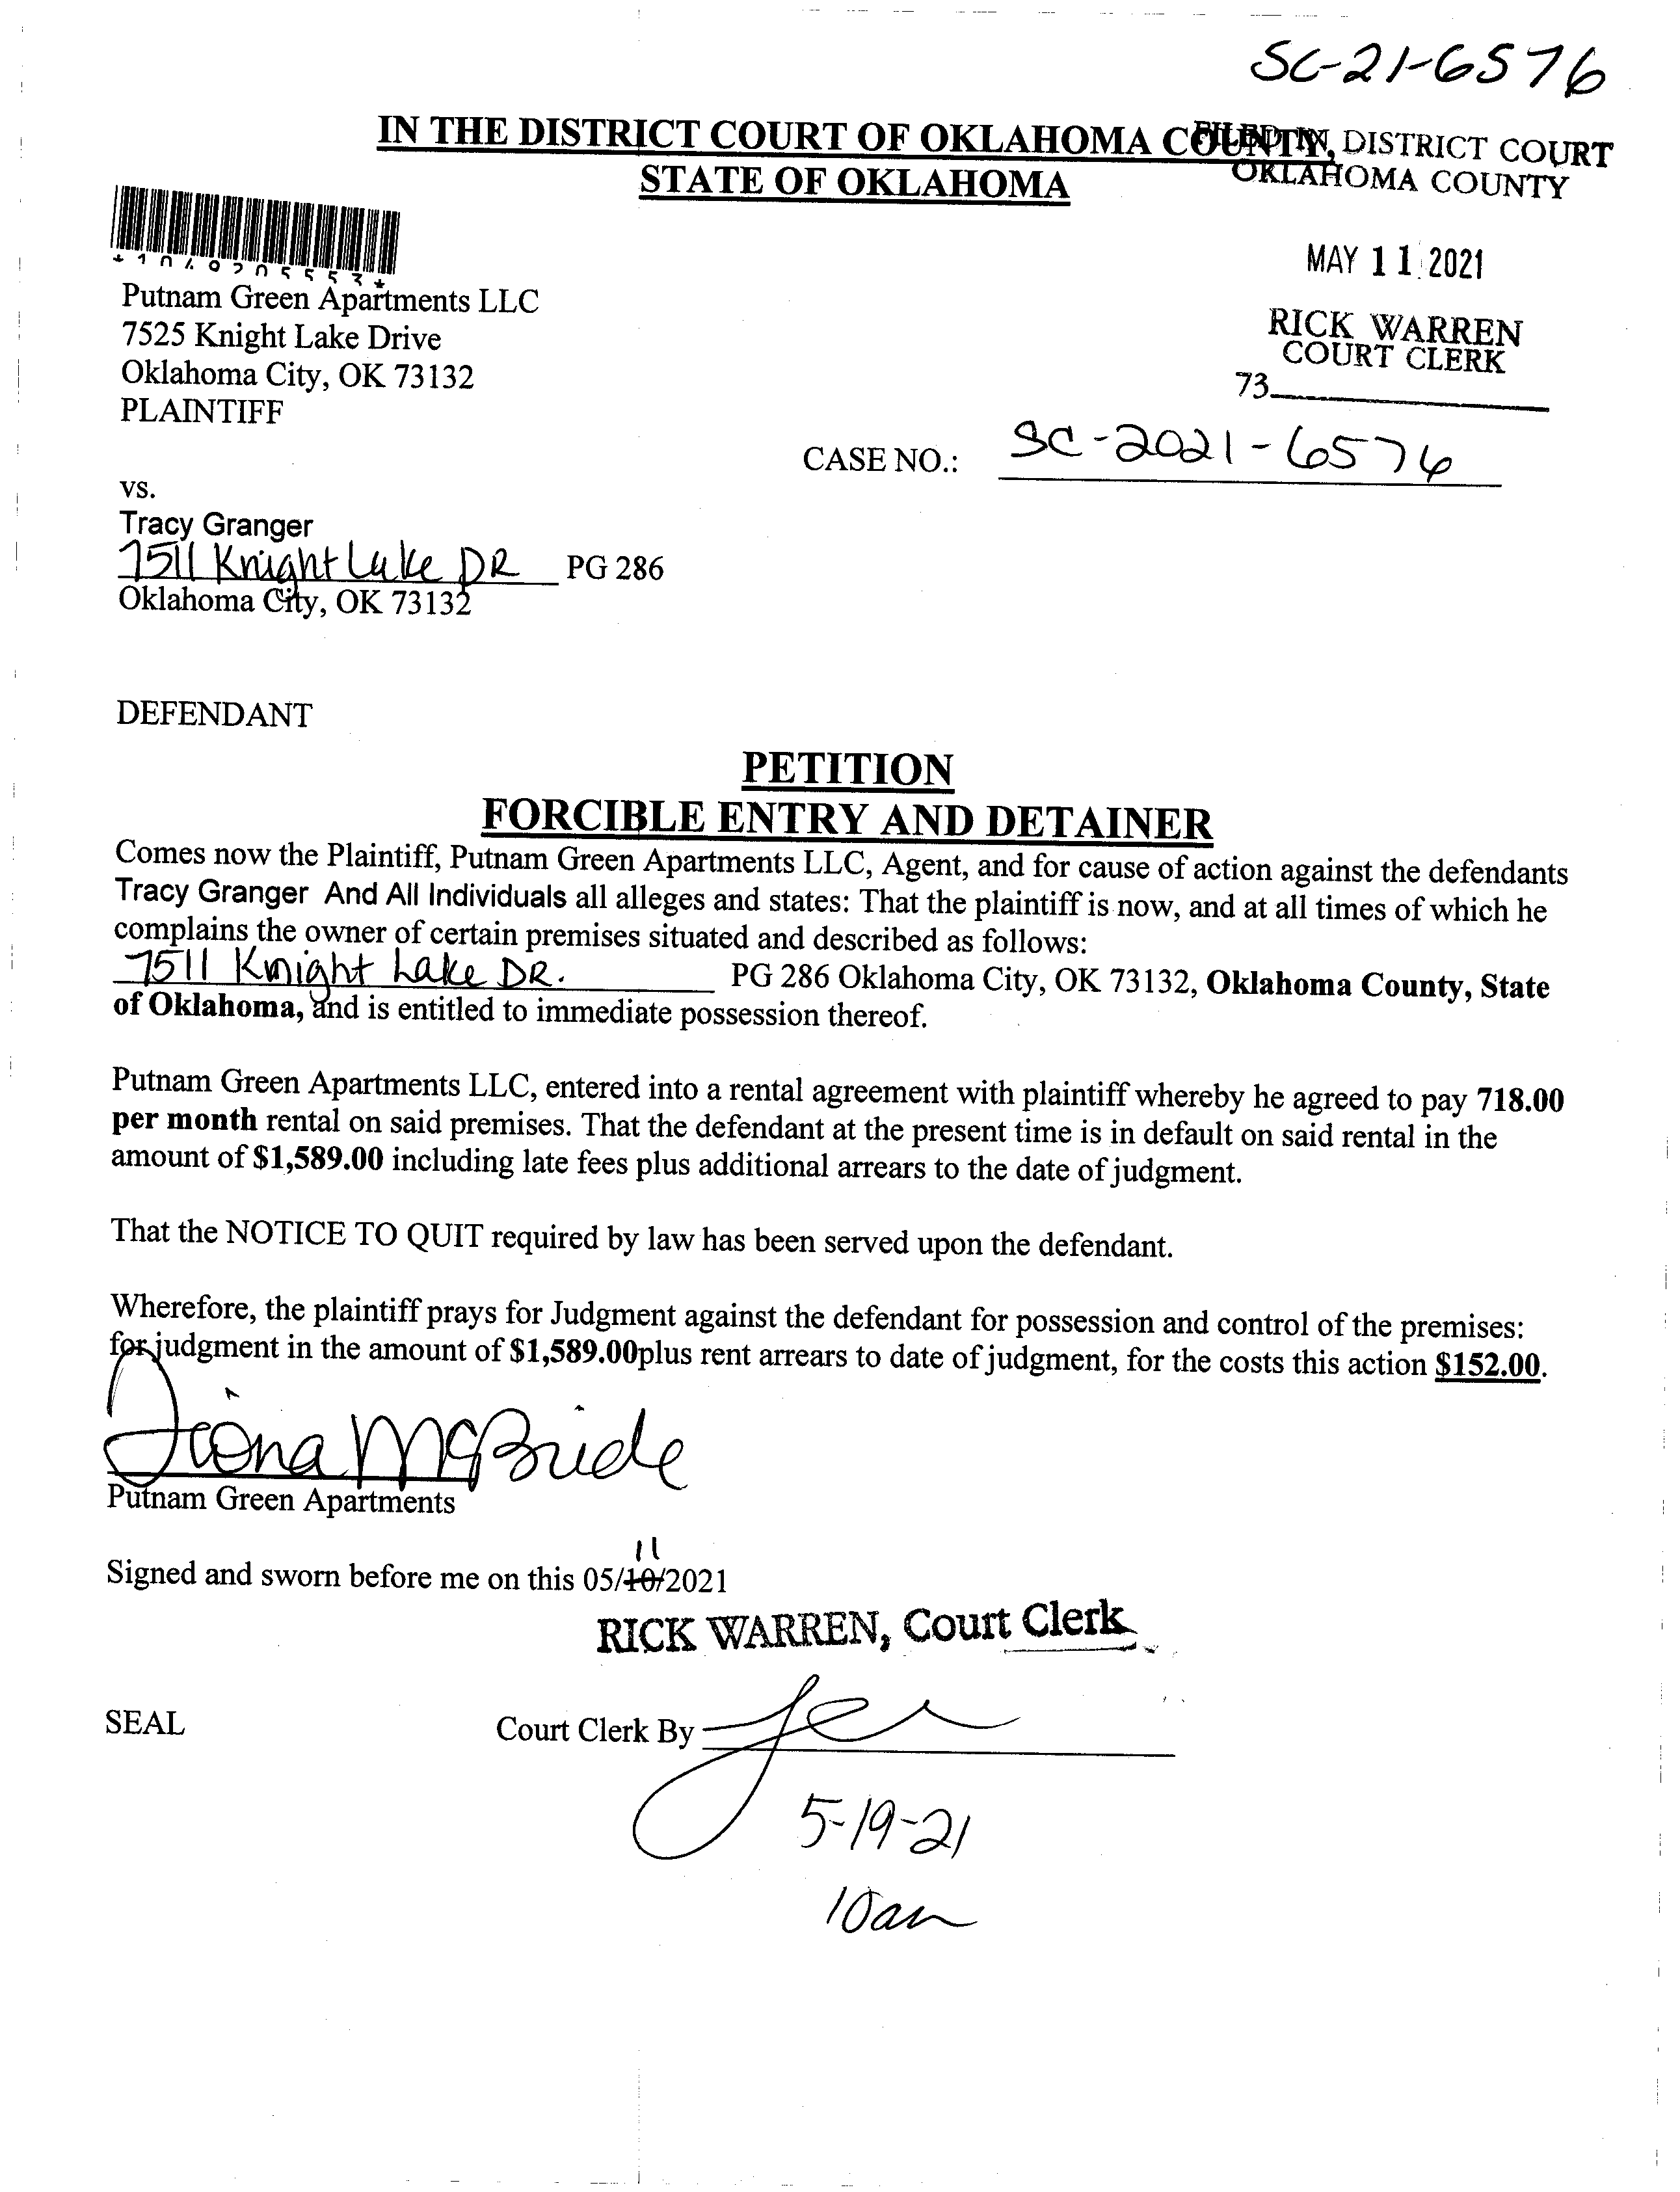 SC-21-6576
IN THE DISTRICT COURT OF OKLAHOMA COUNTY,
STATE OF OKLAHOMA
FILED IN DISTRICT COURT
OKLAHOMA COUNTY
MAY 11 2021
RICK WARREN
COURT CLERK
73
Putnam Green Apartments LLC
7525 Knight Lake Drive
Oklahoma City, OK 73132
PLAINTIFF
CASE NO.: SC-2021-6576
vs.
Tracy Granger
7511 Knight Lake DR PG 286
Oklahoma City, OK 73132
DEFENDANT
PETITION
FORCIBLE ENTRY AND DETAINER
Comes now the Plaintiff, Putnam Green Apartments LLC, Agent, and for cause of action against the defendants
Tracy Granger And All Individuals all alleges and states: That the plaintiff is now, and at all times of which he
complains the owner of certain premises situated and described as follows:
7511 Knight Lake DR. PG 286 Oklahoma City, OK 73132, Oklahoma County, State
of Oklahoma, and is entitled to immediate possession thereof.
Putnam Green Apartments LLC, entered into a rental agreement with plaintiff whereby he agreed to pay 718.00
per month rental on said premises. That the defendant at the present time is in default on said rental in the
amount of $1,589.00 including late fees plus additional arrears to the date of judgment.
That the NOTICE TO QUIT required by law has been served upon the defendant.
Wherefore, the plaintiff prays for Judgment against the defendant for possession and control of the premises:
for judgment in the amount of $1,589.00plus rent arrears to date of judgment, for the costs this action $152.00.
Fiona McBride
Putnam Green Apartments
11
Signed and sworn before me on this 05/10/2021
RICK WARREN, Court Clerk
SEAL Court Clerk By
5-19-21
10am